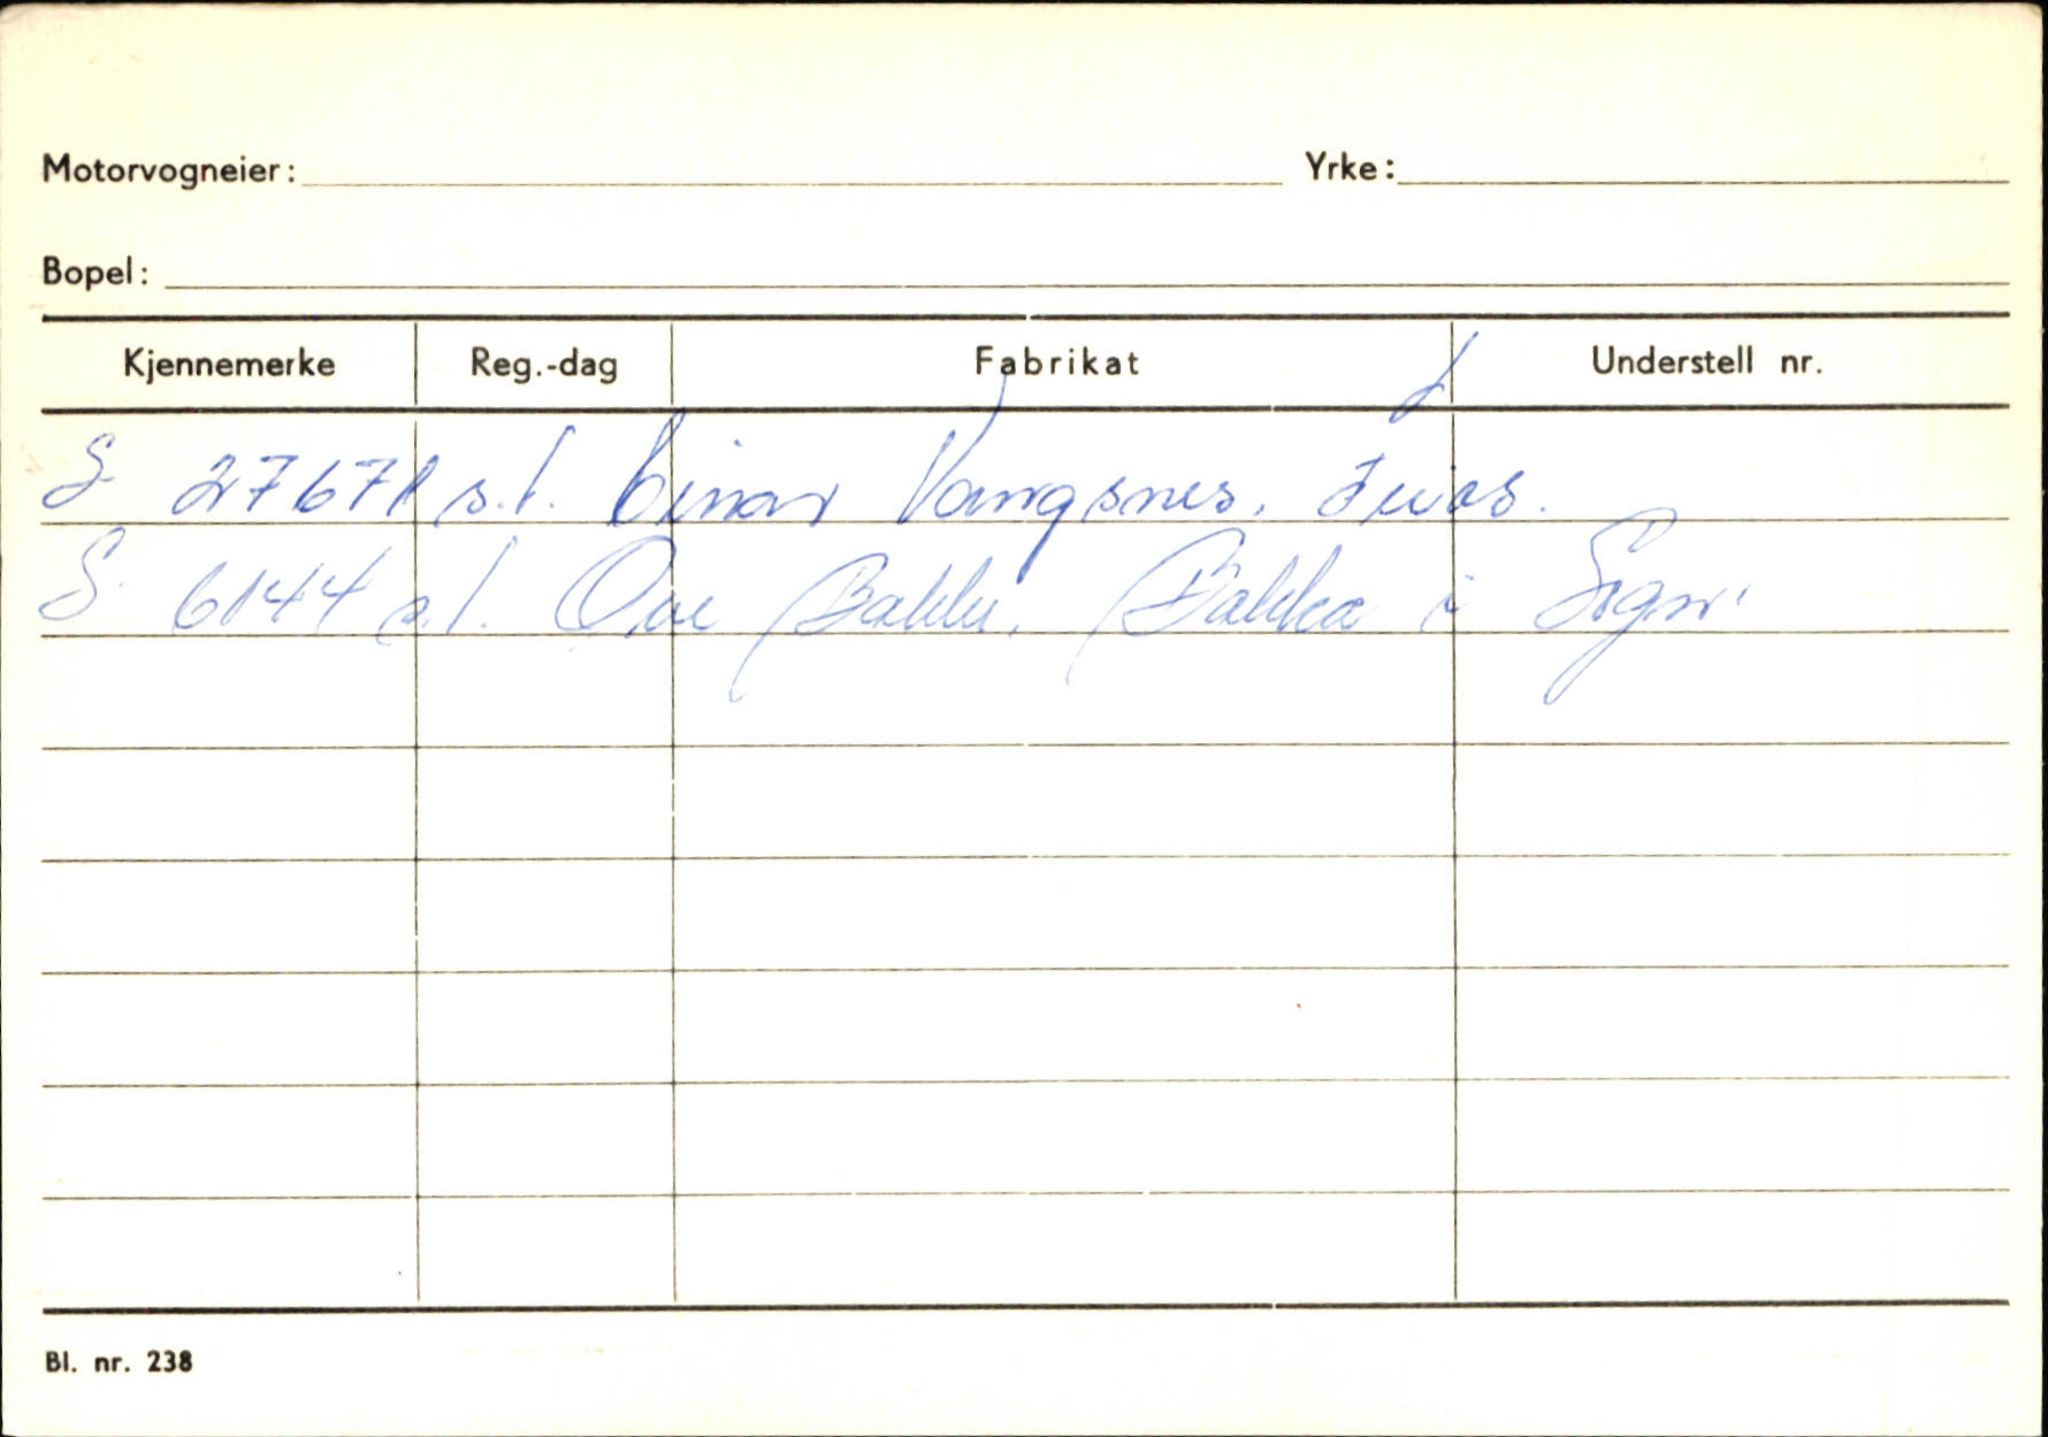 Motorvogneier: Yrke:
Bopel:
Kjennemerke Reg.-dag Fabrikat Understell nr.
S 27671 s.l. Einar Vangsnes. Feios.
S. 6144 s.l. Ove Bakke. Bakka i Sogn.
Bl. nr. 238